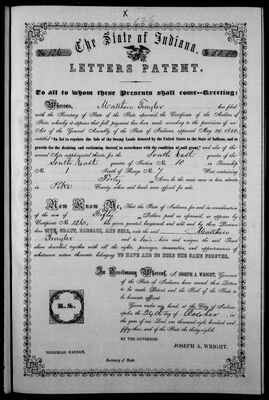 X
The State of Indiana.
LETTERS PATENT.
To all to whom these Presents shall come—Greeting:
Whereas, Matthew has filed
with the Secretary of State of the State aforesaid the Certificate of the Auditor of
State, whereby it appears that full payment has been made according to the provisions of an
Act of the General Assembly of the State of Indiana, approved May 29, 1852,
entitled "An Act to regulate the Sale of the Swamp Lands donated by the United States to the State of Indiana, and to
provide for the draining and reclaiming thereof in accordance with the condition of said grant," and also of the
several Acts supplemental thereto, for the South East quarter of the
South East quarter of Section No. 10 in Township
No. 1 South of Range No. 7 West containing
Forty Acres, be the same more or less, situate
in Pike County, where such lands were offered for sale.
Now Know Ye, That the State of Indiana, for and in consideration
of the sum of Fifty Dollars, paid as aforesaid, as appears by
Certificate No. the given, granted, bargained and sold, and by these Presents
does GIVE, GRANT, BARGAIN, AND SELL, unto the said Matthew
and to his heirs and assigns, the said Tract
above described, together with all the rights, privileges, immunities, and appurtenances of
whatsoever nature thereunto belonging, TO HAVE AND TO HOLD THE SAME FOREVER.
In Testimony Whereof, I, JOSEPH A. WRIGHT, Governor
of the State of Indiana, have caused these Letters
to be made Patent, and the Seal of the State to
be hereunto affixed.
Given under my hand, at the City of Indian-
apolis, the day of October, in
the year of our Lord one thousand eight hundred and
fifty-three, and of the State the thirty-eighth.
BY THE GOVERNOR:
JOSEPH A. WRIGHT.
NEHEMIAH HAYDEN,
Secretary of State.